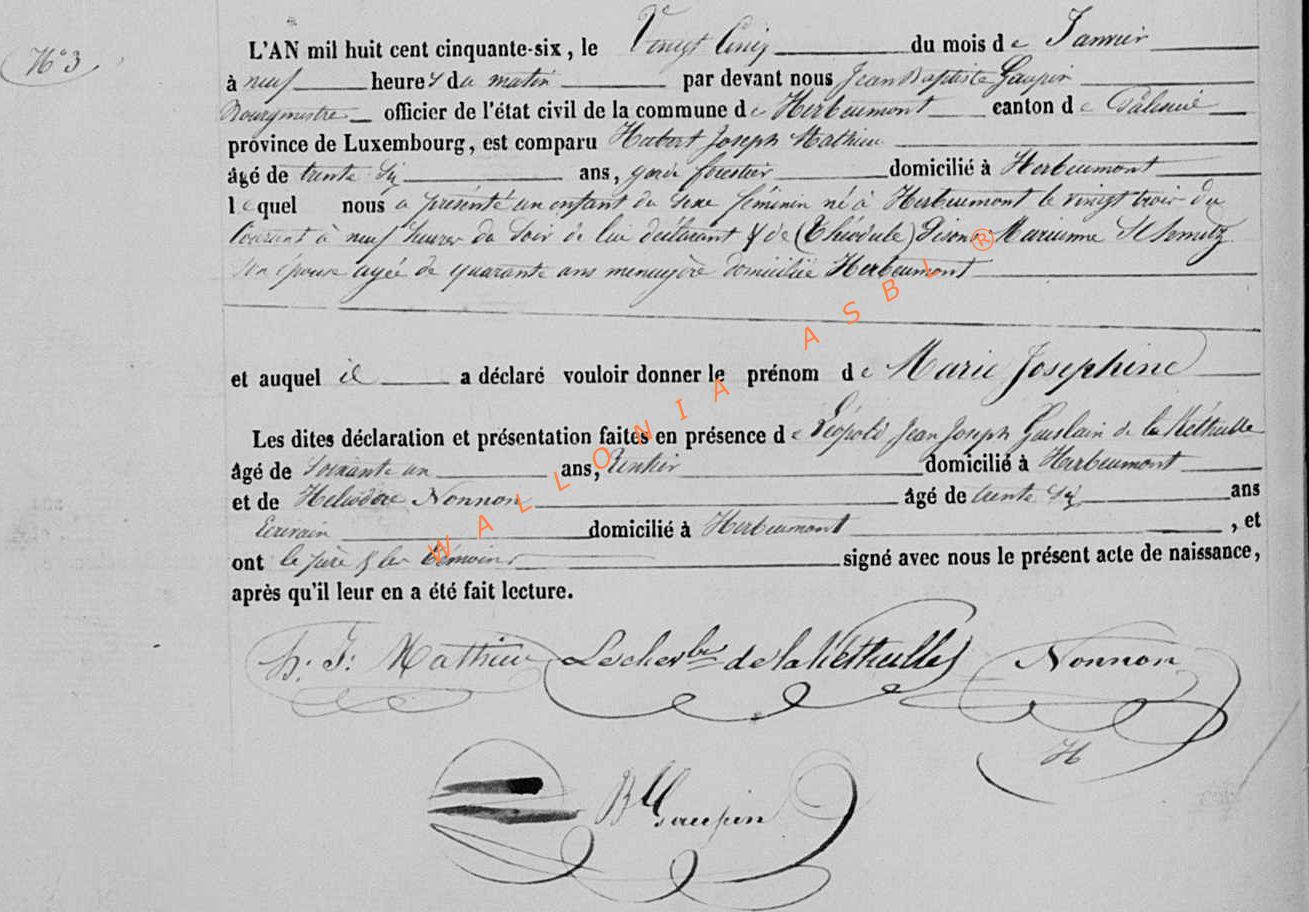 N° 3
L'AN mil huit cent cinquante-six, le Vingt Cinq du mois de Janvier
à neuf heures du matin par devant nous Jean Baptiste Gaupin
Bourgmestre officier de l'état civil de la commune de Herbeumont canton de Paliseul
province de Luxembourg, est comparu Hubert Joseph Mathieu
âgé de trente six ans, garde forestier domicilié à Herbeumont
lequel nous a présenté un enfant du sexe féminin né à Herbeumont le vingt trois du
Courant à neuf heures du Soir de lui déclarant & de (Théodule) Marianne Schmitz
son épouse agée de quarante ans menagère domiciliée Herbeumont
et auquel il a déclaré vouloir donner le prénom de Marie Josephine
Les dites déclaration et présentation faites en présence de Léopold Jean Joseph Guislain de la Kéthulle
âgé de soixante un ans, Rentier domicilié à Herbeumont
et de Heliodore Nonnon âgé de trente six ans
Ecrivain domicilié à Herbeumont, et
ont le père & les témoins signé avec nous le présent acte de naissance,
après qu'il leur en a été fait lecture.
h. J. Mathieu Le cher de la Kethulle Nonnon
H
JB Gaupin
WALLONIA ASBL ®